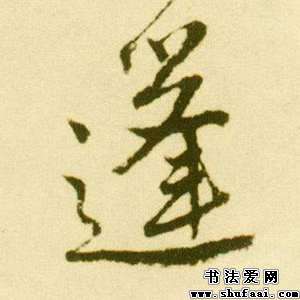 蓬
书法爱网
www.shufaai.com